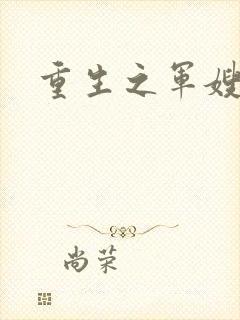 重生之军嫂
尚荣